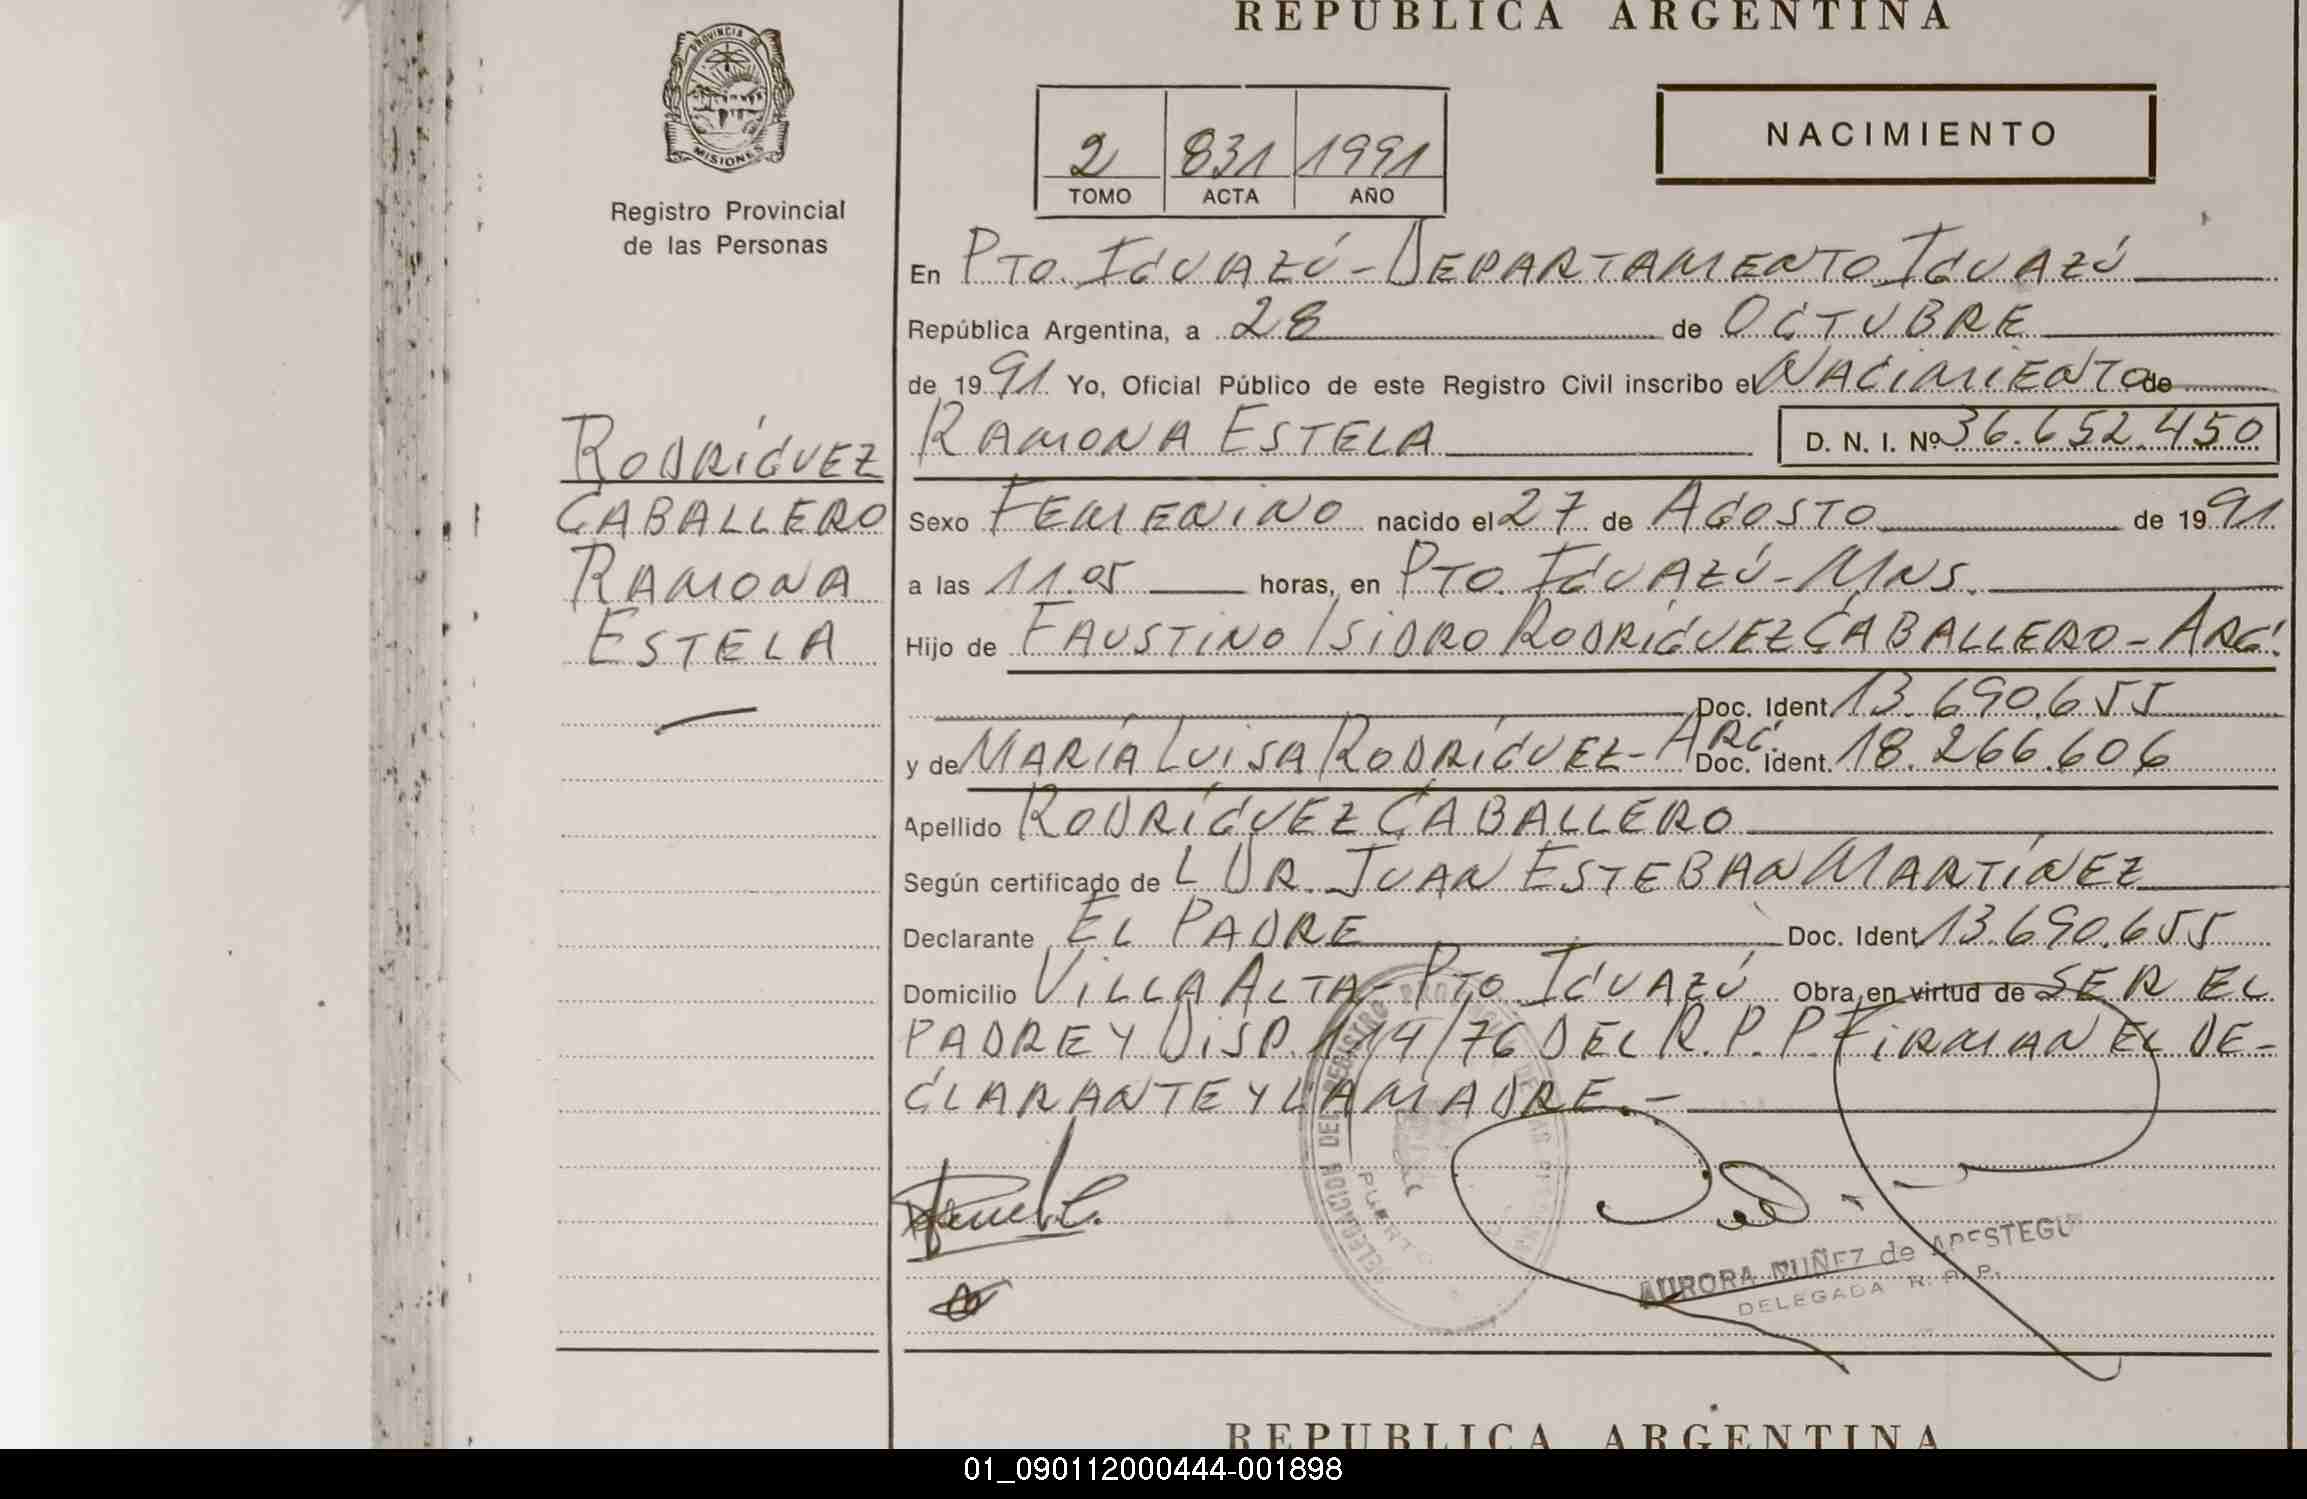 REPUBLICA ARGENTINA
PROVINCIA DE
MISIONES
Registro Provincial
de las Personas
2 831 1991
TOMO ACTA AÑO
NACIMIENTO
En PTO. IGUAZÚ - DEPARTAMENTO IGUAZÚ
República Argentina, a 28 de OCTUBRE
de 1991 Yo, Oficial Público de este Registro Civil inscribo el NACIMIENTO de
RAMONA ESTELA D. N. I. Nº 36.652.450
RODRÍGUEZ
CABALLERO
RAMONA
ESTELA
Sexo FEMENINO nacido el 27 de AGOSTO de 1991
a las 11.05 horas, en PTO. IGUAZÚ - MNS.
Hijo de FAUSTINO ISIDRO RODRÍGUEZ CABALLERO - ARG.
Doc. Ident. 13.690.655
y de MARÍA LUISA RODRÍGUEZ - ARG. Doc. Ident. 18.266.606
Apellido RODRÍGUEZ CABALLERO
Según certificado de L DR. JUAN ESTEBAN MARTÍNEZ
Declarante EL PADRE Doc. Ident. 13.690.655
Domicilio VILLA ALTA - PTO. IGUAZÚ Obra en virtud de SER EL
PADRE Y DISP. 114/76 DEL R.P.P. FIRMAN EL DE-
CLARANTE Y LA MADRE.-
DELEGACION DEL REGISTRO
PUERTO
AURORA NUÑEZ de
DELEGADA
REPUBLICA ARGENTINA
01_090112000444-001898